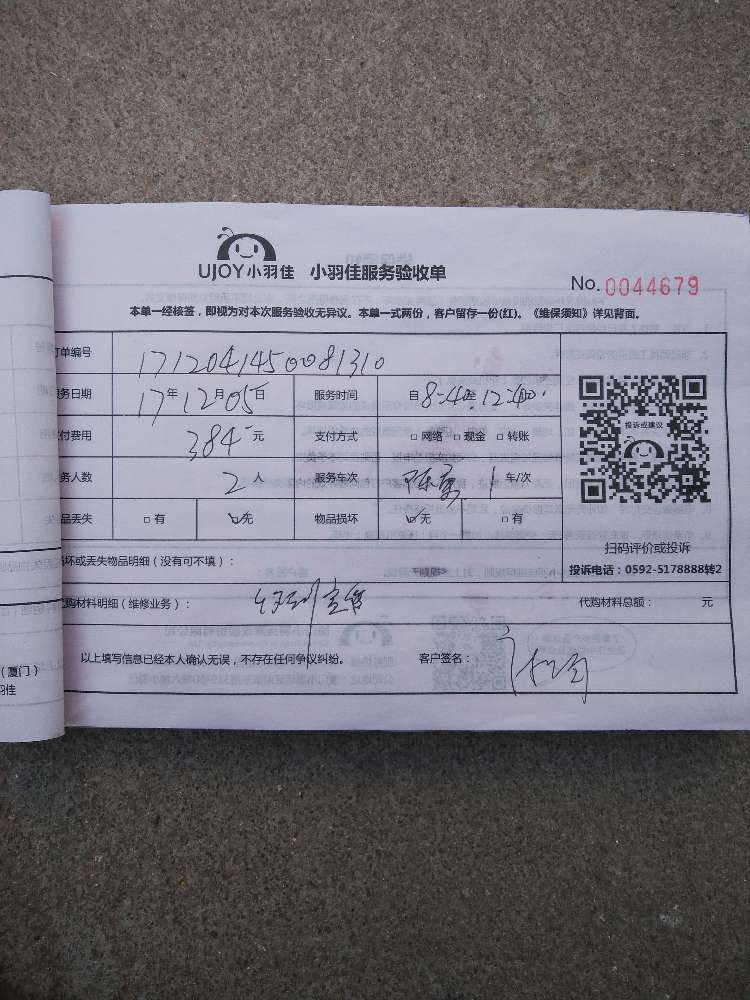 UJOY小羽佳 小羽佳服务验收单
No. 0044679
本单一经核签，即视为对本次服务验收无异议。本单一式两份，客户留存一份(红)。《维保须知》详见背面。
订单编号 1712041450081310
服务日期 17年12月05日 服务时间 自8:40至12:40
支付费用 384元 支付方式 □网络 □现金 □转账
务人数 2人 服务车次 1车/次
品丢失 □有 ☑无 物品损坏 ☑无 □有
投诉或建议
扫码评价或投诉
投诉电话：0592-5178888转2
坏或丢失物品明细（没有可不填）：
代购材料明细（维修业务）：
代购材料总额： 元
以上填写信息已经本人确认无误，不存在任何争议纠纷。 客户签名：
（厦门）
羽佳